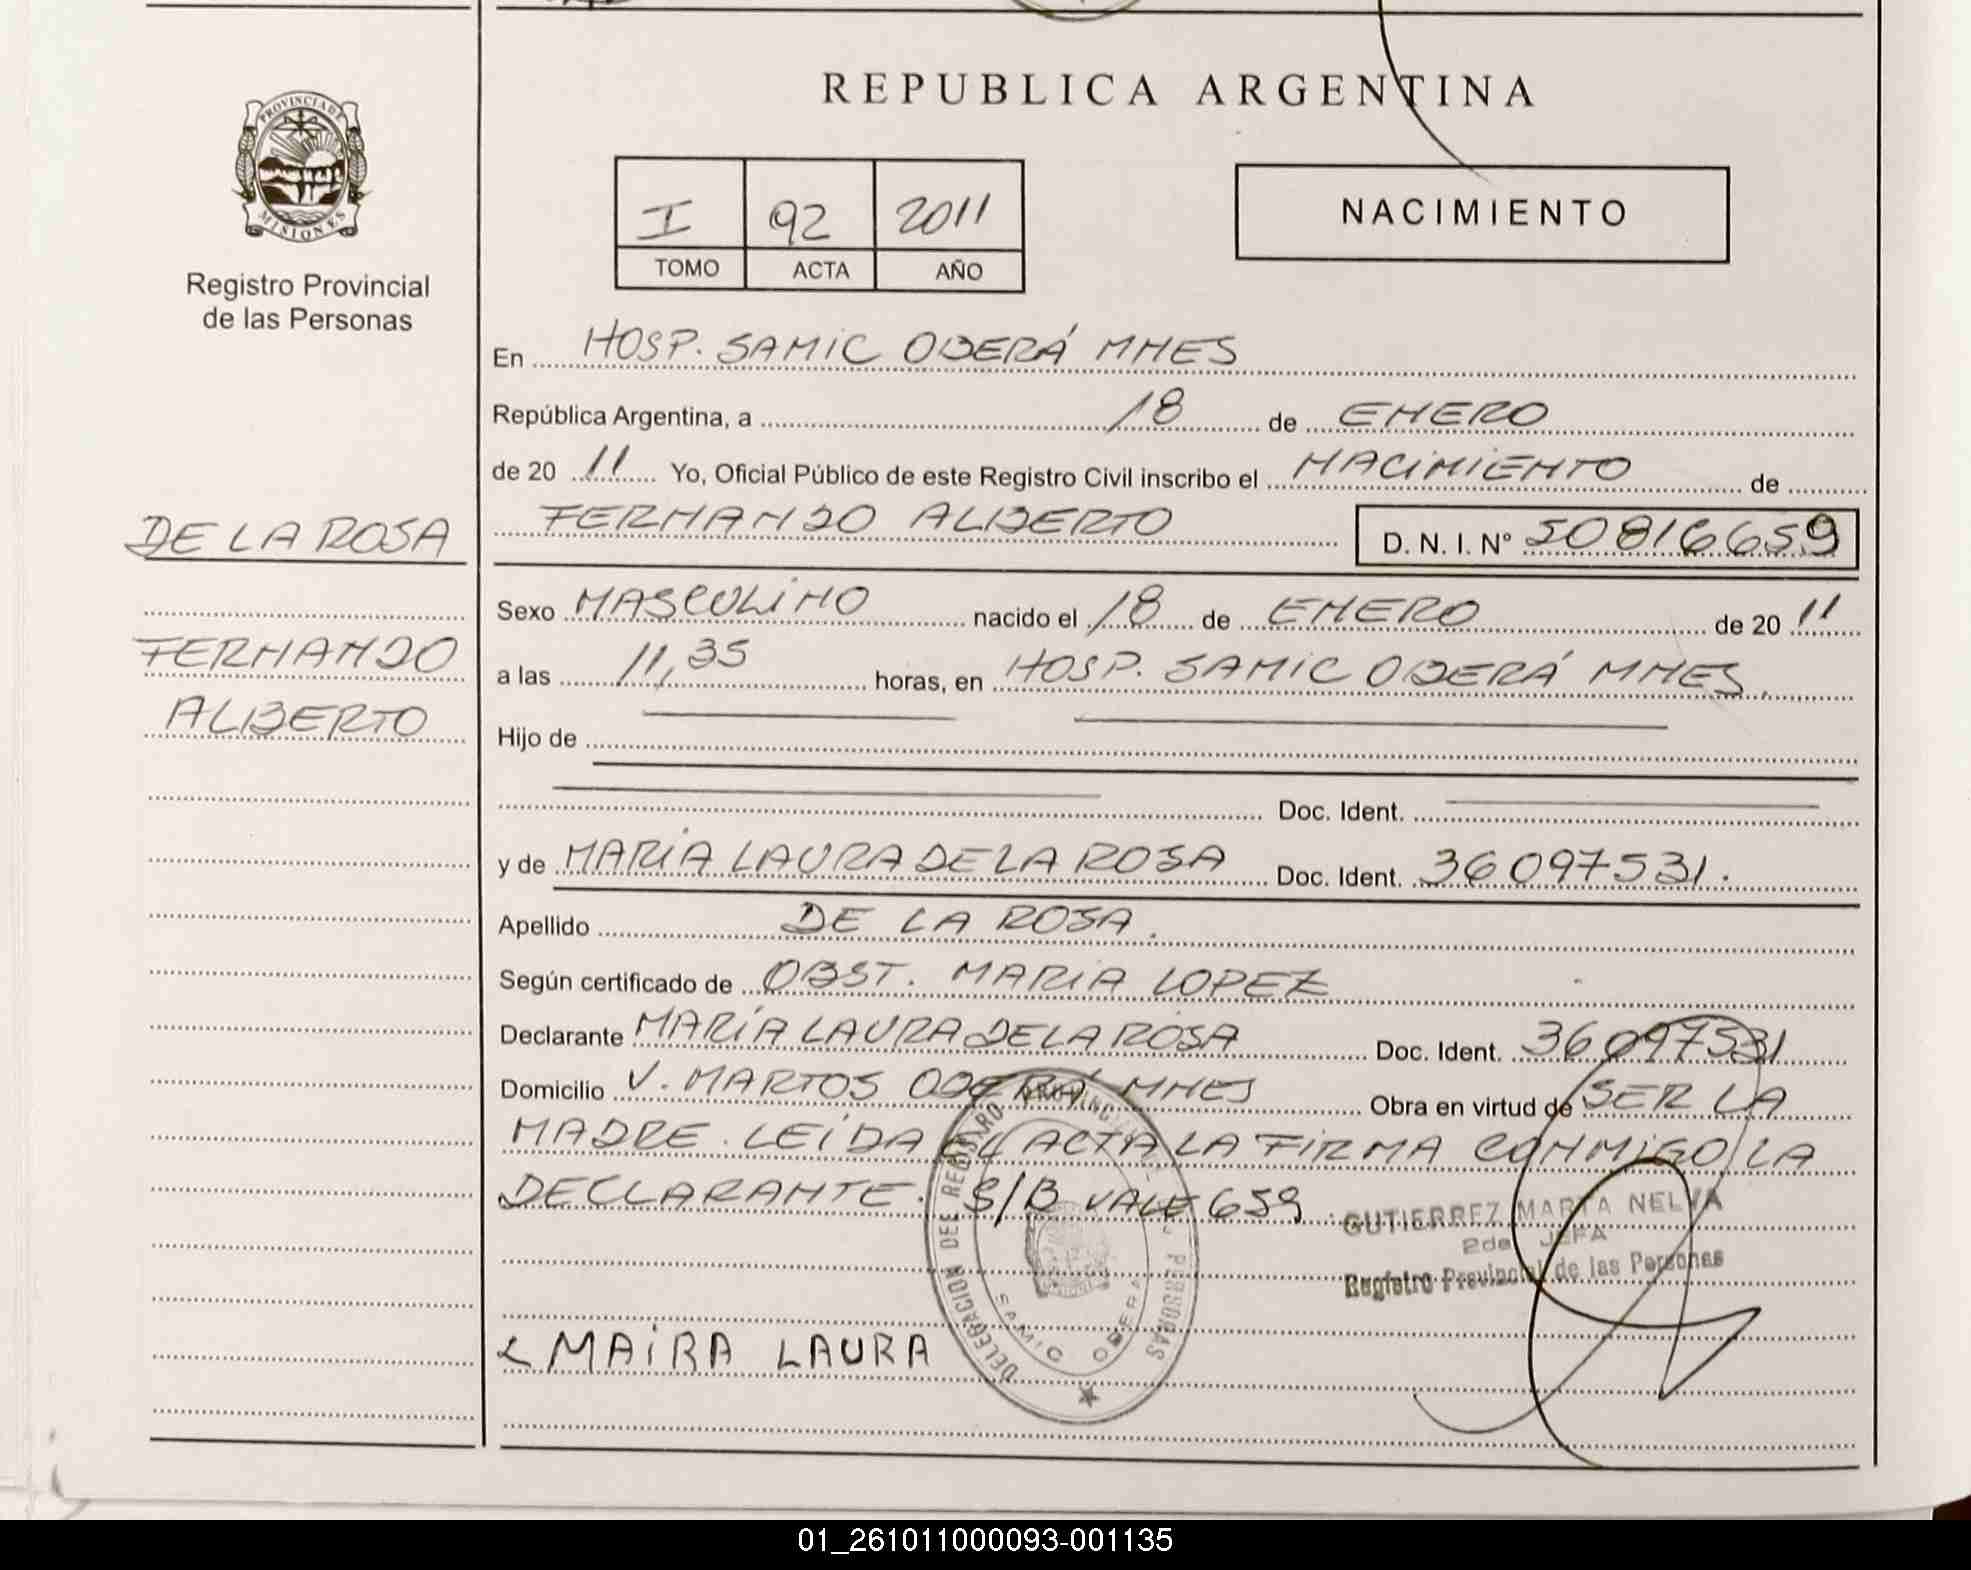 REPUBLICA ARGENTINA
PROVINCIA DE
MISIONES
Registro Provincial
de las Personas
I 92 2011
TOMO ACTA AÑO
NACIMIENTO
En HOSP. SAMIC OBERÁ MNES
República Argentina, a 18 de ENERO
de 20 11 Yo, Oficial Público de este Registro Civil inscribo el NACIMIENTO de
FERNANDO ALBERTO D. N. I. Nº 50816659
DE LA ROSA
FERNANDO
ALBERTO
Sexo MASCULINO nacido el 18 de ENERO de 20 11
a las 11,35 horas, en HOSP. SAMIC OBERÁ MNES.
Hijo de
Doc. Ident.
y de MARÍA LAURA DE LA ROSA Doc. Ident. 36097531.
Apellido DE LA ROSA.
Según certificado de OBST. MARIA LOPEZ
Declarante MARÍA LAURA DE LA ROSA Doc. Ident. 36097531
Domicilio V. MARTOS OBERÁ MNES Obra en virtud de SER LA
MADRE. LEÍDA EL ACTA LA FIRMA CONMIGO LA
DECLARANTE. S/B VALE 659
GUTIERREZ MARTA NELVA
2da JEFA
Registro Provincial de las Personas
DELEGACION DEL REGISTRO PROVINCIAL DE LAS PERSONAS
SAMIC OBERA
MAIRA LAURA
01_261011000093-001135